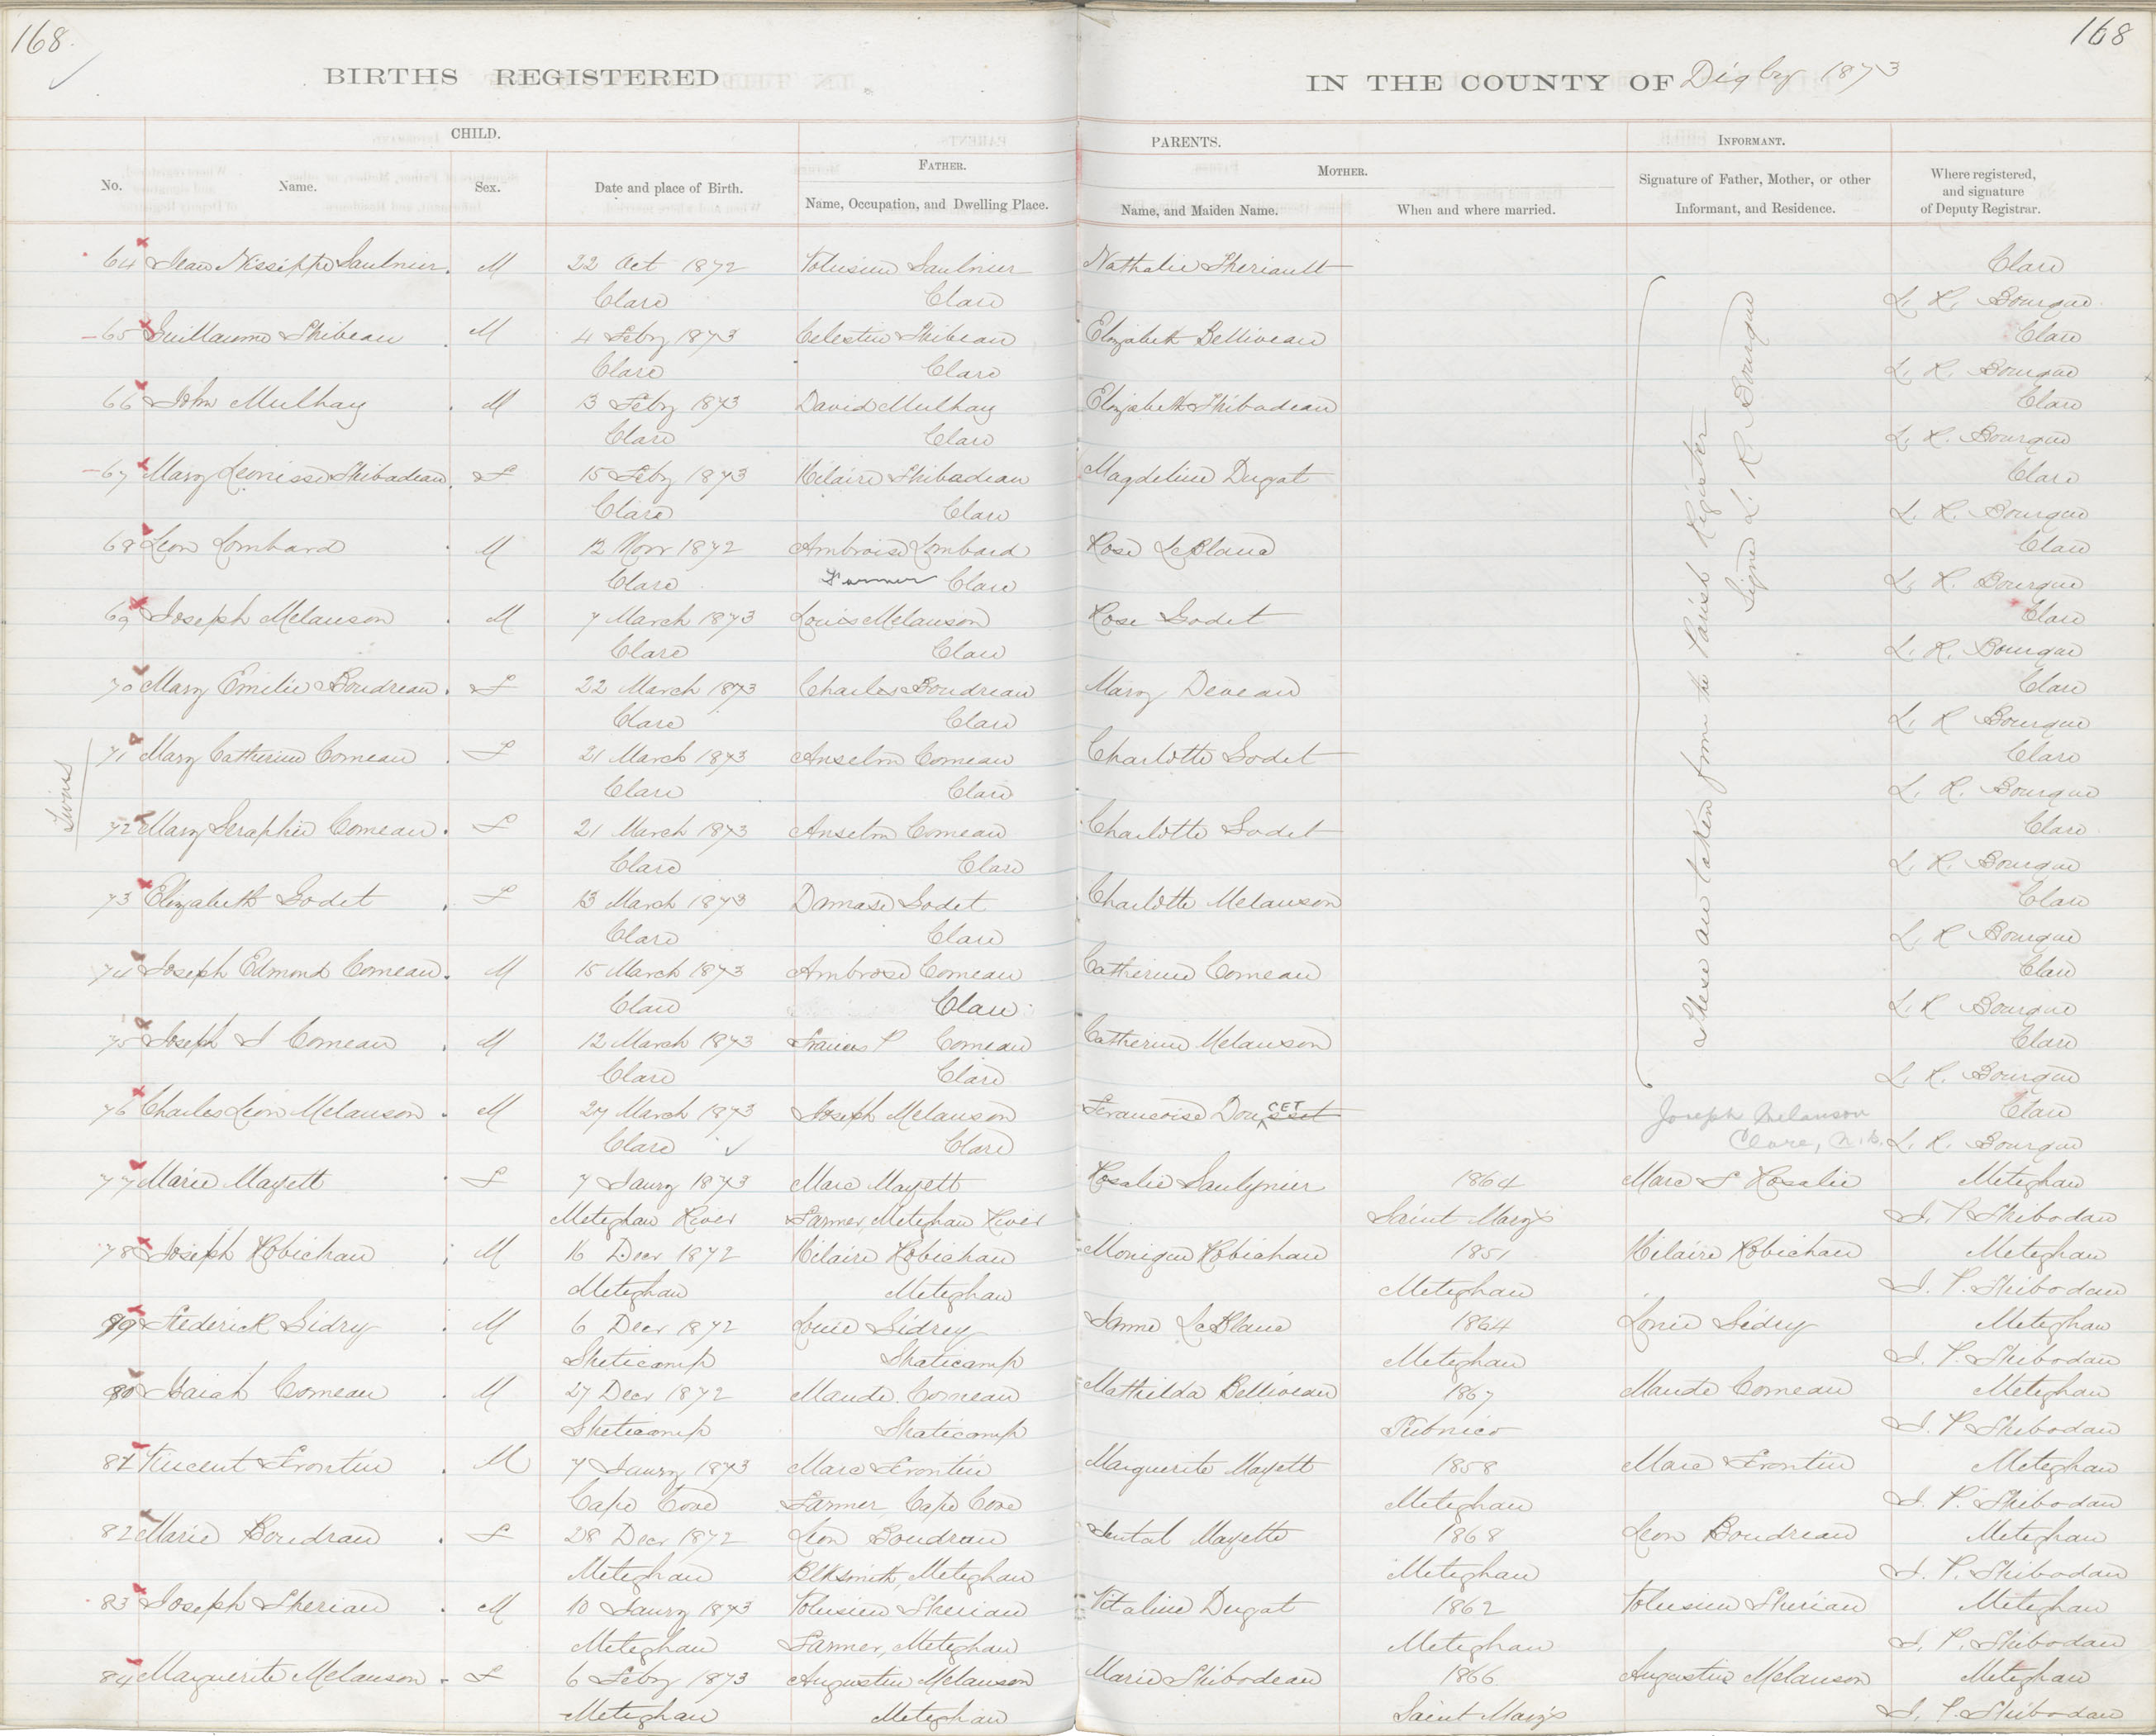 168.
168
BIRTHS REGISTERED
IN THE COUNTY OF Digby 1873
CHILD.
PARENTS.
INFORMANT.
FATHER.
MOTHER.
No.
Name.
Sex.
Date and place of Birth.
Name, Occupation, and Dwelling Place.
Name, and Maiden Name.
When and where married.
Signature of Father, Mother, or other
Informant, and Residence.
Where registered,
and signature
of Deputy Registrar.
64 Jean Saulnier M 22 Oct 1872 Volusien Saulnier Nathalie Theriault Clare
Clare Clare L. R. Bourque
65 Guillaume Thibeau M 4 Feby 1873 Celestin Thibeau Elizabeth Belliveau Clare
Clare Clare L. R. Bourque
66 John Mulhay M 13 Feby 1873 David Mulhay Elizabeth Thibodeau Clare
Clare Clare L. R. Bourque
67 Mary Leonisse Thibadeau F 15 Feby 1873 Hilaire Thibadeau Magdeline Dugat Clare
Clare Clare L. R. Bourque
68 Leon Lombard M 12 Novr 1872 Ambroise Lombard Rose LeBlanc Clare
Clare Farmer Clare L. R. Bourque
69 Joseph Melanson M 7 March 1873 Louis Melanson Rose Godet Clare
Clare Clare L. R. Bourque
70 Mary Emilie Boudreau F 22 March 1873 Charles Boudreau Mary Deveau Clare
Clare Clare L. R Bourque
Twins
71 Mary Catherine Comeau F 21 March 1873 Anselm Comeau Charlotte Godet Clare
Clare Clare L. R. Bourque
72 Mary Seraphie Comeau F 21 March 1873 Anselm Comeau Charlotte Godet Clare
Clare Clare L. R. Bourque
73 Elizabeth Godet F 13 March 1873 Damase Godet Charlotte Melanson Clare
Clare Clare L. R Bourque
74 Joseph Edmond Comeau M 15 March 1873 Ambrose Comeau Catherine Comeau Clare
Clare Clare L. R Bourque
75 Joseph J Comeau M 12 March 1873 Francis P Comeau Catherine Melanson Clare
Clare Clare L. R. Bourque
These are taken from the Parish Register
Signed L. R. Bourque
76 Charles Leon Melanson M 27 March 1873 Joseph Melanson Francoise Doucet Joseph Melanson Clare
Clare Clare Clare, N.S. L. R. Bourque
77 Marie Mayett F 7 Jany 1873 Marc Mayett Rosalie Saulynier 1864 Marc & Rosalie Meteghan
Meteghan River Farmer, Meteghan River Saint Mary's J. P. Thibodau
78 Joseph Robichau M 16 Decr 1872 Hilaire Robichau Monique Robichau 1851 Hilaire Robichau Meteghan
Meteghan Meteghan Meteghan J. P. Thibodau
79 Frederick Sidry M 6 Decr 1872 Louie Sidrey Janne LeBlanc 1864 Lonie Sidry Meteghan
Sheticamp Shaticamp Meteghan J. P. Thibodau
80 Isaiah Comeau M 27 Decr 1872 Maude Comeau Mathilda Belliveau 1867 Maude Comeau Meteghan
Sheticamp Shaticamp Pubnico J. P. Thibodau
81 Vincent Frontin M 7 Jany 1873 Marc Frontin Marguerite Mayett 1858 Marc Frontin Meteghan
Cape Cove Farmer, Cape Cove Meteghan J. P. Thibodau
82 Marie Boudrau F 28 Decr 1872 Leon Boudrau Mayette 1868 Leon Boudreau Meteghan
Meteghan Blksmith, Meteghan Meteghan J. P. Thibodau
83 Joseph Theriau M 10 Jany 1873 Volusien Theriau Vitaline Dugat 1862 Volusien Theriau Meteghan
Meteghan Farmer, Meteghan Meteghan J. P. Thibodau
84 Marguerite Melanson F 6 Feby 1873 Augustin Melanson Marie Thibodeau 1866 Augustin Melanson Meteghan
Meteghan Meteghan Saint Mary's J. P. Thibodau